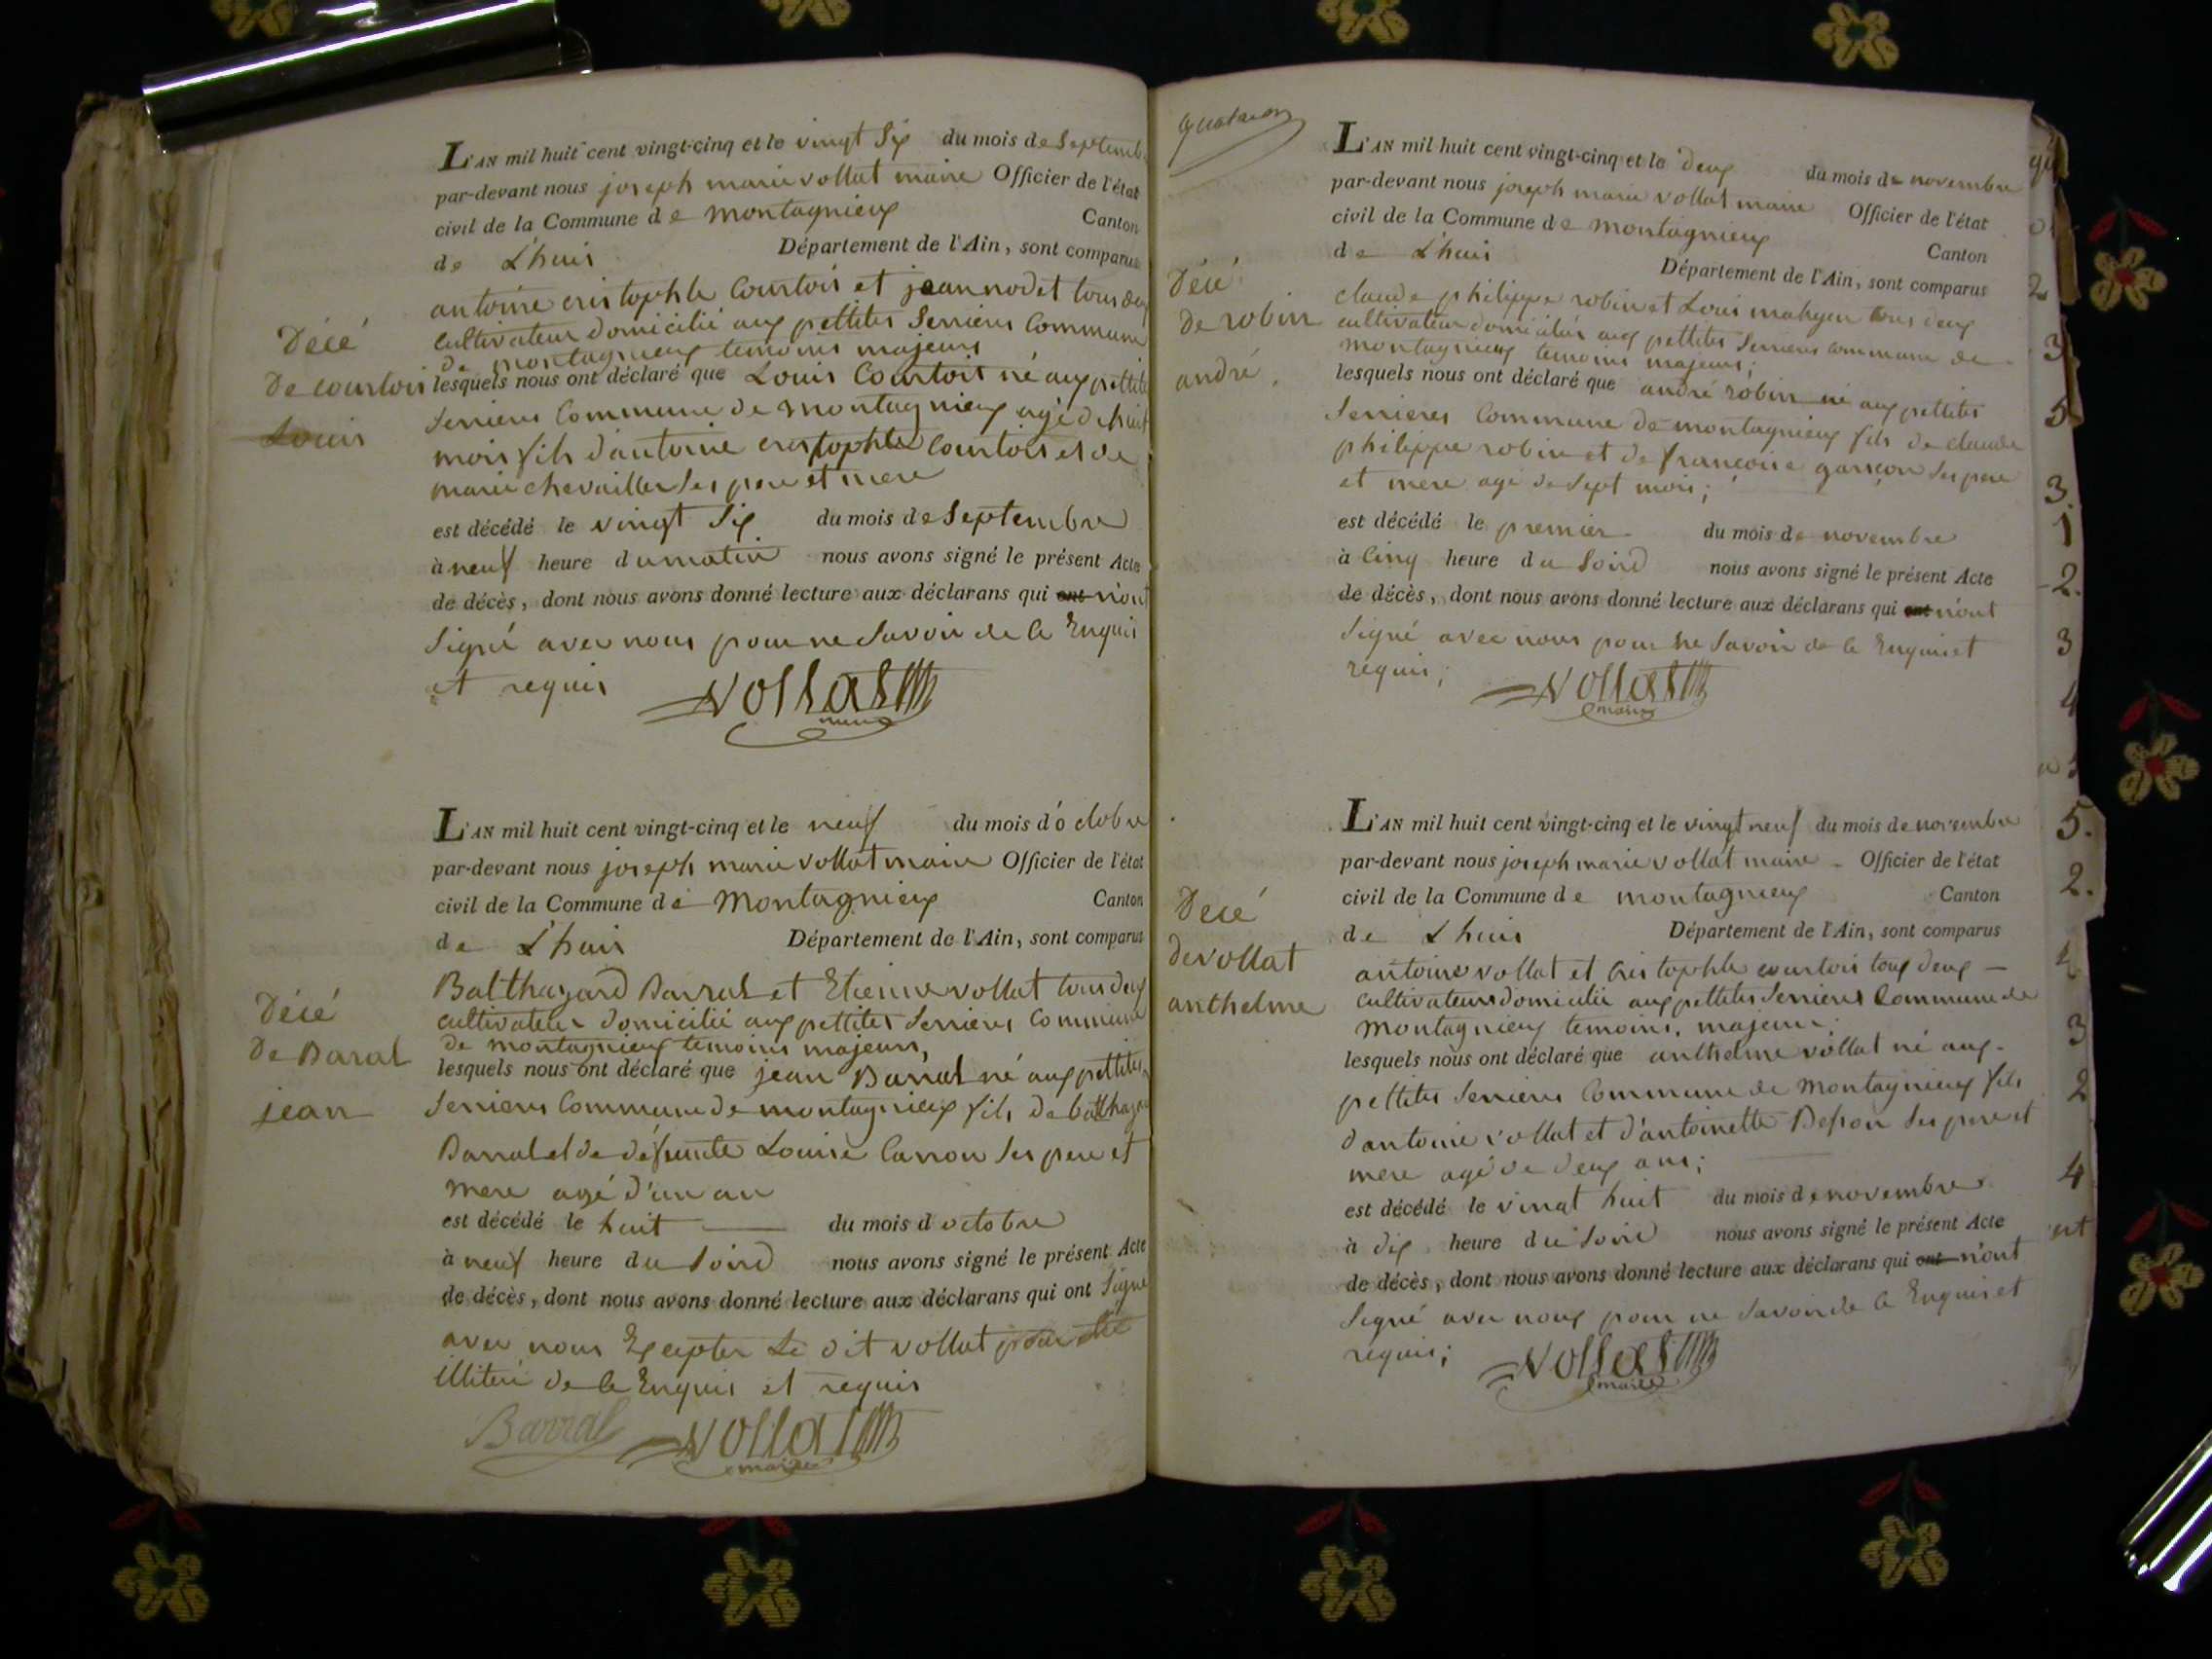 L'AN mil huit cent vingt-cinq et le vingt Six du mois de Septemb
par-devant nous joseph marie vollat maire Officier de l'état
civil de la Commune de montagnieux Canton
de L'huis Département de l'Ain, sont comparus
antoine cristophle Courtois et jean nodet tous deux
cultivateur domicilié aux pettites Serrieres Commune
de montagnieux temoins majeurs
Décé
De courtois
Louis
lesquels nous ont déclaré que Louis Courtois né aux pettite
Serrieres Commune de montagnieux agé de huit
mois fils d'antoine cristophle courtois et de
marie chevailler ses pere et mere
est décédé le vingt Six du mois de Septembre
à neuf heure du matin nous avons signé le présent Acte
de décès, dont nous avons donné lecture aux déclarans qui ont n'ont
Signé avec nous pour ne Savoir de ce Enquis
et requis vollat
maire
L'AN mil huit cent vingt-cinq et le neuf du mois d'octobre
par-devant nous joseph marie vollat maire Officier de l'état
civil de la Commune de Montagnieux Canton
de L'huis Département de l'Ain, sont comparus
Balthazard Barral et Etienne vollat tous deux
cultivateur domicilié aux pettites Serrieres Commune
de montagnieux temoins majeurs,
Décé
De Baral
jean
lesquels nous ont déclaré que jean Barral né aux pettites
Serrieres Commune de montagnieux fils de balthaza
Barral et de défunte Louise Carron ses pere et
mere agé d'un an
est décédé le huit du mois d'octobre
à neuf heure du Soird nous avons signé le présent Acte
de décès, dont nous avons donné lecture aux déclarans qui ont Signé
avec nous Excepter Le dit vollat pour etre
illiteré de ce Enquis et requis
Barral vollat
maire
L'AN mil huit cent vingt-cinq et le deux du mois de novembre
par-devant nous joseph marie vollat maire Officier de l'état
civil de la Commune de montagnieux Canton
de L'huis Département de l'Ain, sont comparus
claude philippe robin et Louis mahyeu tous deux
cultivateur domiciliés aux pettites Serrieres commune de
montagnieux temoins majeurs;
Décé
de robin
andré
lesquels nous ont déclaré que andré robin né aux pettites
Serrieres Commune de montagnieux fils de claude
philippe robin et de francoise garçon ses pere
et mere agé de Sept mois;
est décédé le premier du mois de novembre
à Cinq heure du Soird nous avons signé le présent Acte
de décès, dont nous avons donné lecture aux déclarans qui ont n'ont
Signé avec nous pour ne Savoir de ce Enquis et
requis; vollat
maire
L'AN mil huit cent vingt-cinq et le vingt neuf du mois de novembre
par-devant nous joseph marie vollat maire Officier de l'état
civil de la Commune de montagnieux Canton
de L'huis Département de l'Ain, sont comparus
Décé
de vollat
anthelme
antoine vollat et cristophle courtois tous deux
cultivateurs domicilié aux pettites Serrieres Commune de
montagnieux temoins, majeurs;
lesquels nous ont déclaré que anthelme vollat né aux
pettites Serrieres Commune de Montagnieux fils
d'antoine vollat et d'antoinette ses pere et
mere agé de deux ans;
est décédé le vingt huit du mois de novembre
à dix heure du Soird nous avons signé le présent Acte
de décès, dont nous avons donné lecture aux déclarans qui ont n'ont
Signé avec nous pour ne Savoir de ce Enquis et
requis; vollat
maire